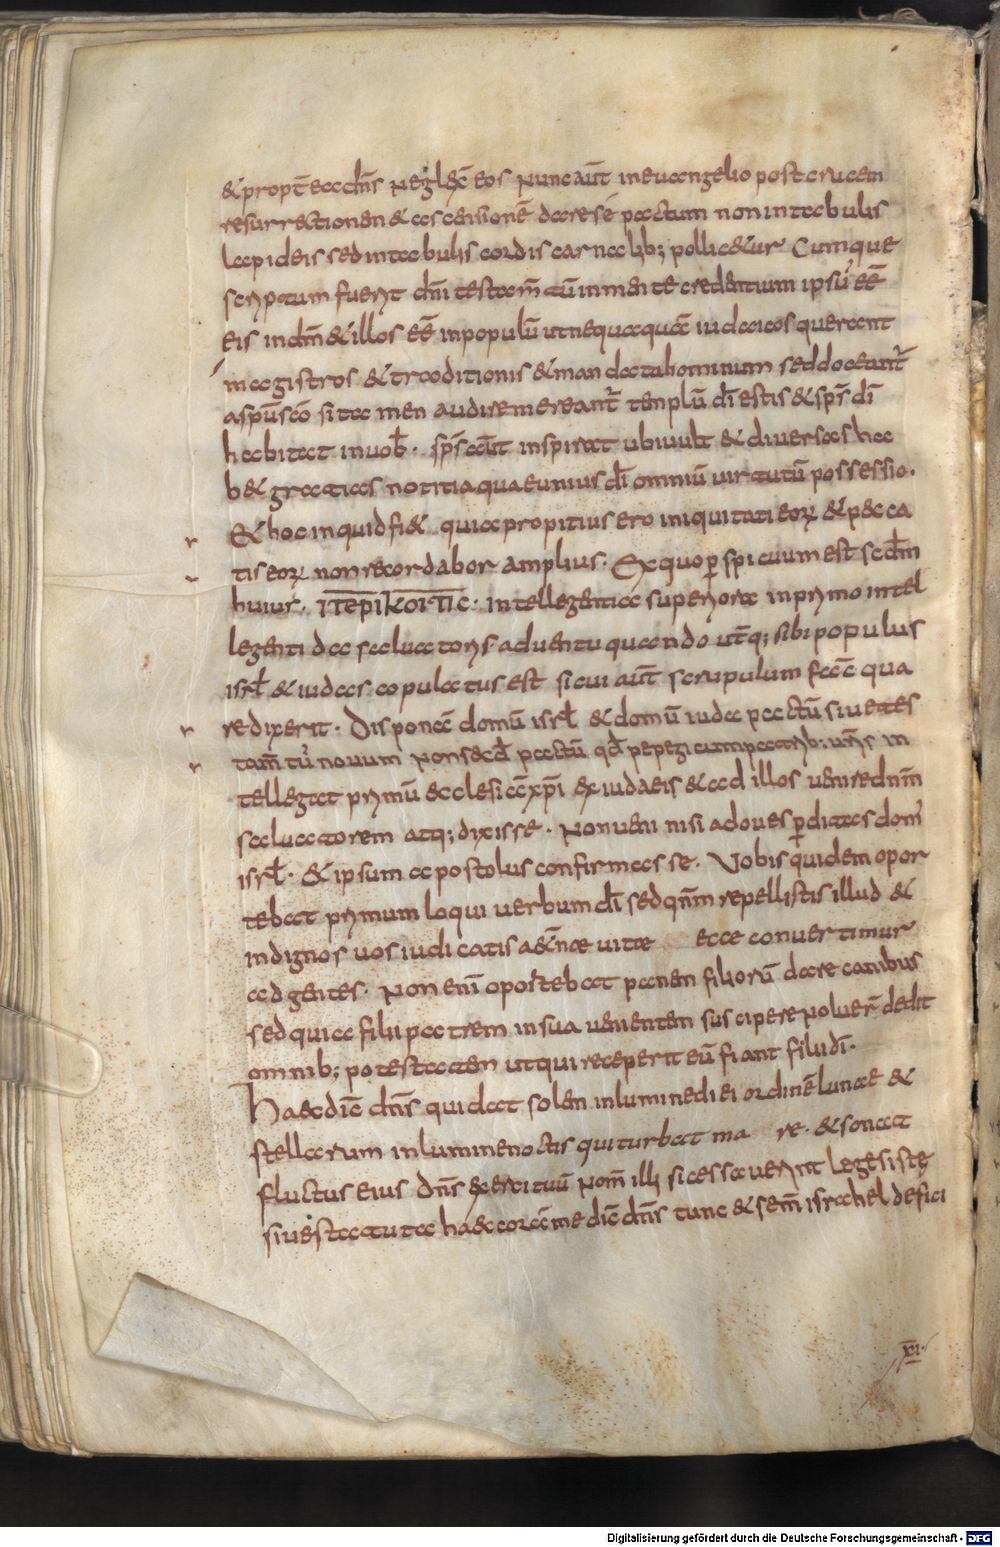 & propt ea dns neglex eos Nunc aut in euangelio post crucem
resurrectionen & ascensionē dare se pactum non in tabulis
lapideis sed in tabulis cordis carnalib; pollic&ur Cumque
scriptum fuerit dni testam̄tū in mente credentium ipsū eē
eis in dm̄ & illos eē in populū ut nequaquā iudaicos querant
magistros & traditionis & mandata hominum sed doceant̄
a spū scō si tamen audire mereant̄ templū dī estis & sps̄ dī
habitat in uob̄· sps̄ aūt inspirat ubi uult & diuersas ha
b& gratias notitia quae unius dī omniū uirtutū possessio·
& hoc inquid fi& quia propitius ero iniquitati eoꝝ & pecca
tis eoꝝ non recordabor amplius· Ex quo perspicuum est scdm̄
huius· ΠΕΡΙΚΟΠΗC· intellegentia superiora in primo intel
legenti da saluatoris aduentu quando utq; sibi populus
isrl̄ & iudas copulatus est si cui aūt scrupulum facē qua
re dixerit· Disponā domū isrl̄ & domū iuda pactū siue tes
tam̄tū nouum Non secd̄ pactū qd̄ pepegi cum patrib: ur̄is in
tellegat primū ecclesiā xp̄i ex iudaeis & ad illos uenire dnm̄
saluatorem atq; dixisse· Non ueni nisi ad oues perditas dom̄
isrl̄· & ipsum apostolus confirmasse· Uobis quidem opor
tebat primum loqui uerbum dī sed qnm̄ repellistis illud &
indignos uos iudicatis aet̄nae uitae ecce conuertimur
ad gentes· Non enī oportebat panem filiorū dare canibus
sed quia filii patrem in sua uenientem suscipere noluer̄ dedit
omnib; potestatem ut qui receperit eū fiant filii dī·
Haec diē dns̄ qui dat solem in lumine diei ordinē lunae &
stellarum in lumine noctis qui turbat ma re· & sonat
fluctus eius dns̄ exercituū nom̄ illi si cessauerint leges iste
siue statuta haec coram me diē dns̄ tunc & sem̄ israhel defici
xi·
Digitalisierung gefördert durch die Deutsche Forschungsgemeinschaft - DFG